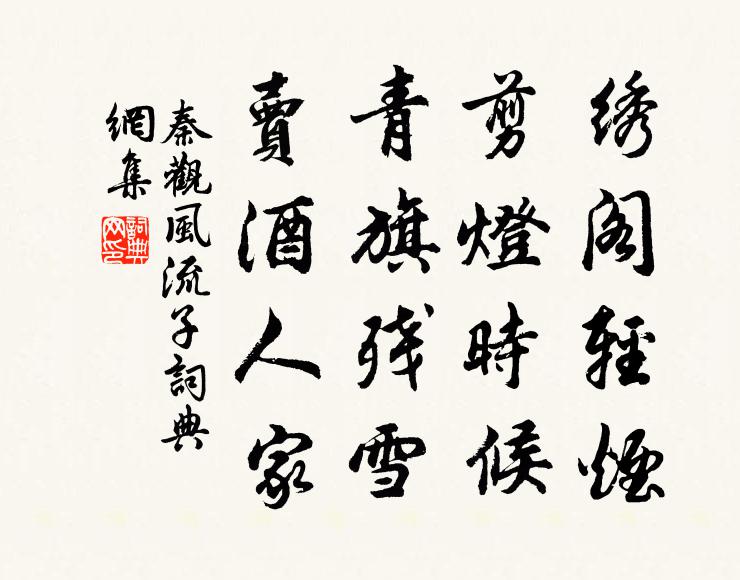 绣阁轻煙
剪燈時候
青旗残雪
賣酒人家
秦觀風流子詞典
網集
詞典
网印